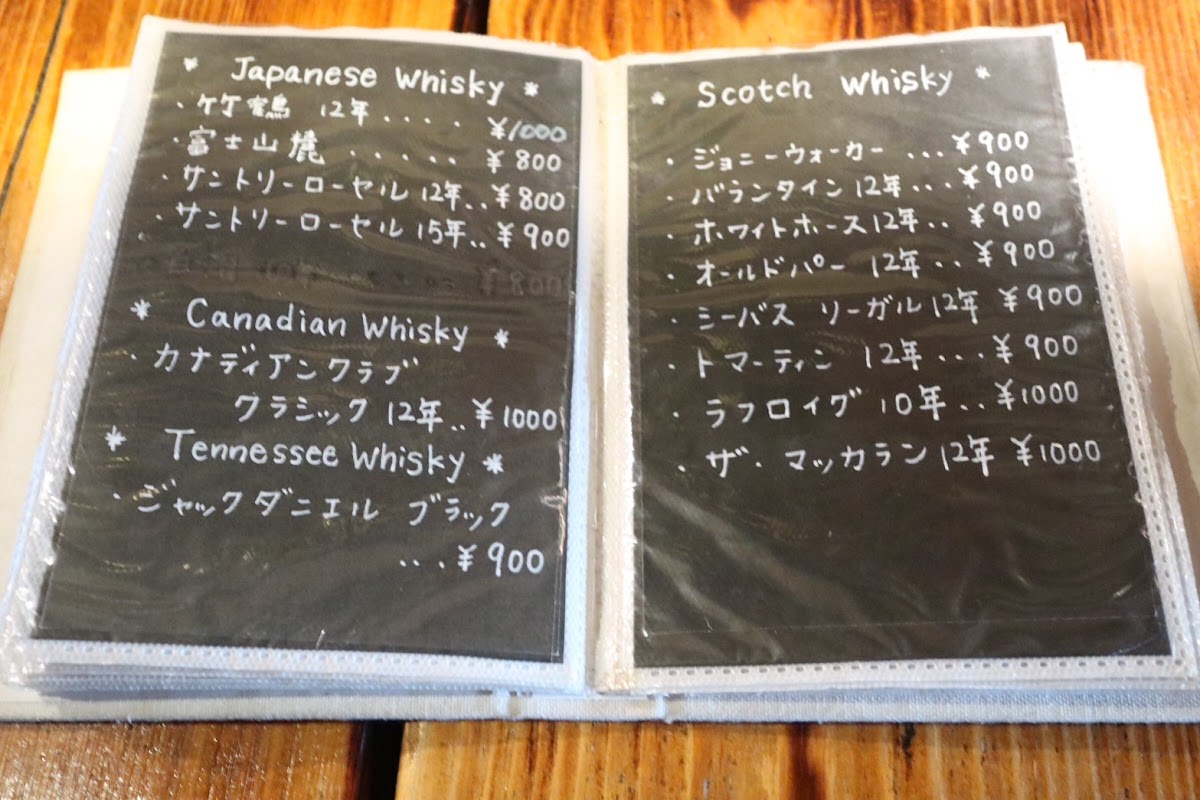 * Japanese Whisky *
・竹鶴 12年.... ¥1000
・富士山麓 ..... ¥800
・サントリーローヤル 12年.. ¥800
・サントリーローヤル 15年.. ¥900
¥800
* Canadian Whisky *
・カナディアンクラブ
クラシック 12年.. ¥1000
* Tennessee Whisky *
・ジャックダニエル ブラック
... ¥900
* Scotch Whisky *
・ジョニーウォーカー ... ¥900
・バランタイン 12年... ¥900
・ホワイトホース 12年.. ¥900
・オールドパー 12年.. ¥900
・シーバス リーガル 12年 ¥900
・トマーティン 12年... ¥900
・ラフロイグ 10年.. ¥1000
・ザ・マッカラン 12年 ¥1000